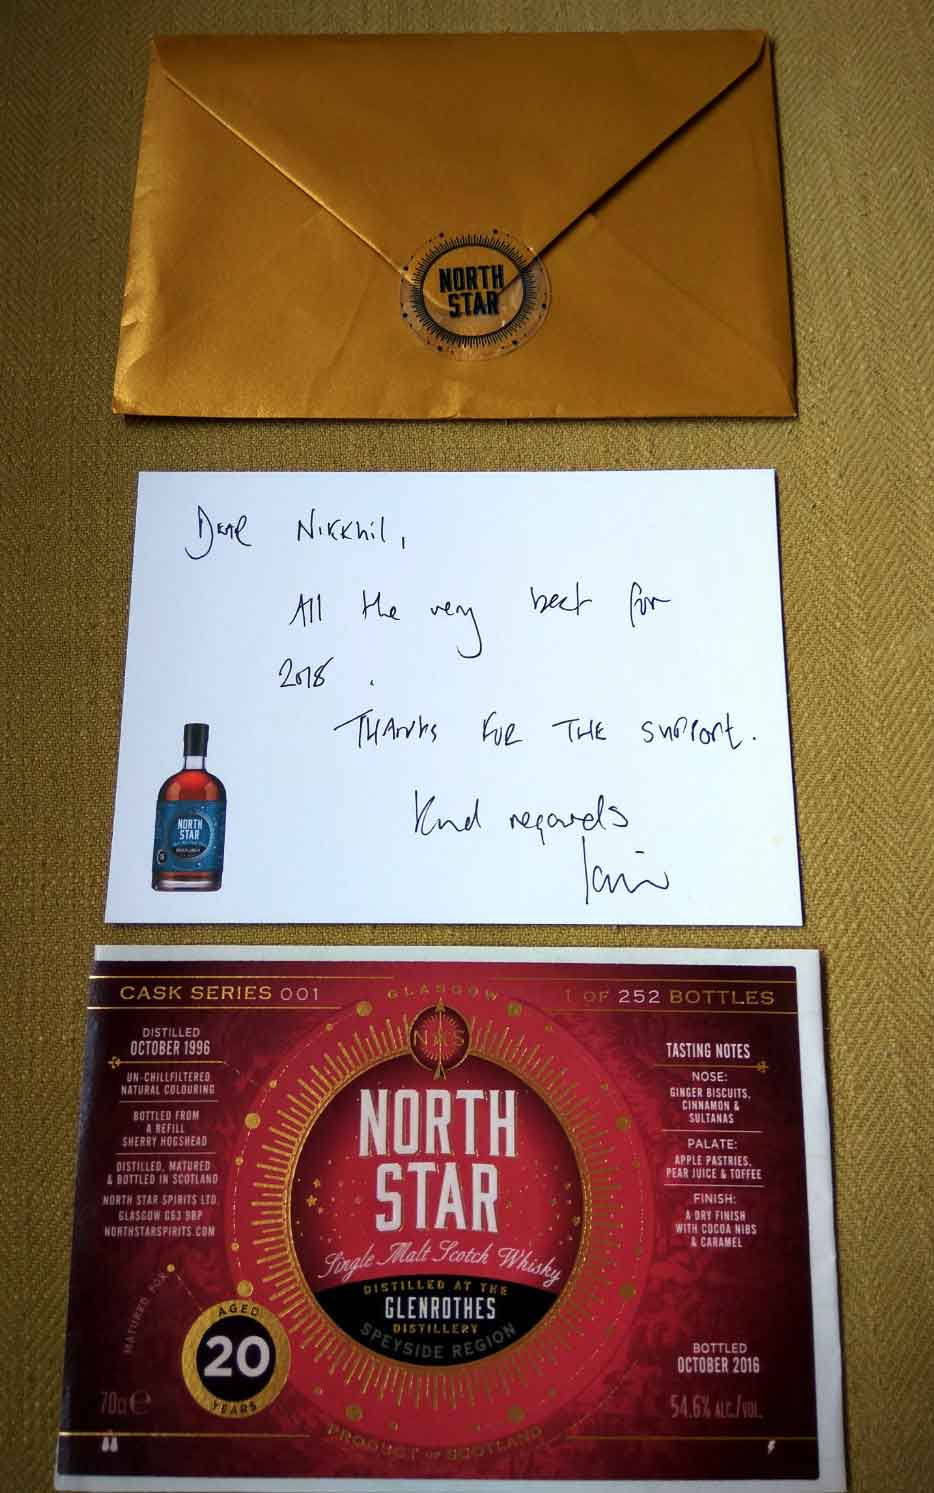 NORTH
STAR
Dear Nikkhil,
All the very best for
2018.
THANKS FOR THE SUPPORT.
Kind regards
Iain
NORTH
STAR
CASK SERIES 001
GLASGOW
1 OF 252 BOTTLES
DISTILLED
OCTOBER 1996
UN-CHILLFILTERED
NATURAL COLOURING
BOTTLED FROM
A REFILL
SHERRY HOGSHEAD
DISTILLED, MATURED
& BOTTLED IN SCOTLAND
NORTH STAR SPIRITS LTD.
GLASGOW G53 9BP
NORTHSTARSPIRITS.COM
MATURED FOR
AGED
20
YEARS
70cl e
N S
NORTH
STAR
Single Malt Scotch Whisky
DISTILLED AT THE
GLENROTHES
DISTILLERY
SPEYSIDE REGION
PRODUCT OF SCOTLAND
TASTING NOTES
NOSE:
GINGER BISCUITS,
CINNAMON &
SULTANAS
PALATE:
APPLE PASTRIES,
PEAR JUICE & TOFFEE
FINISH:
A DRY FINISH
WITH COCOA NIBS
& CARAMEL
BOTTLED
OCTOBER 2016
54.6% ALC./VOL.